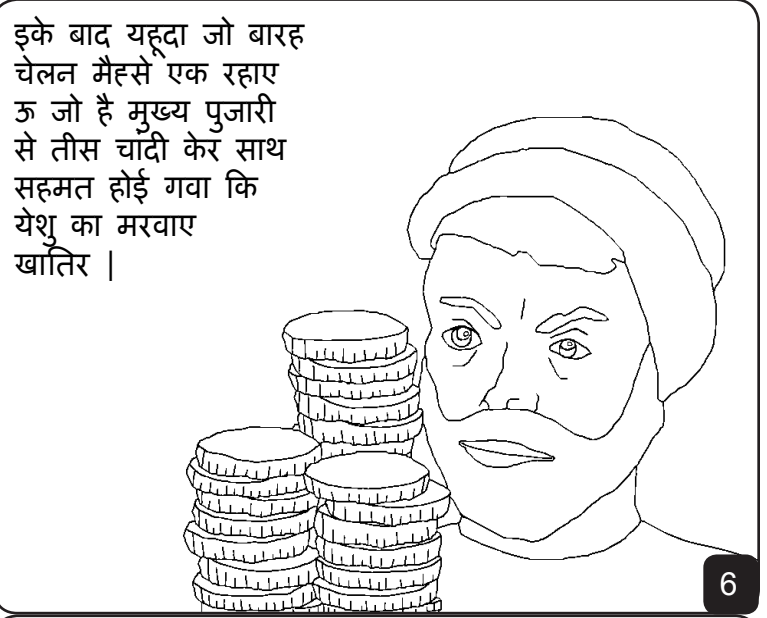 इके बाद यहूदा जो बारह
चेलन मैह्से एक रहाए
ऊ जो है मुख्य पुजारी
से तीस चांदी केर साथ
सहमत होई गवा कि
येशु का मरवाए
खातिर |
6